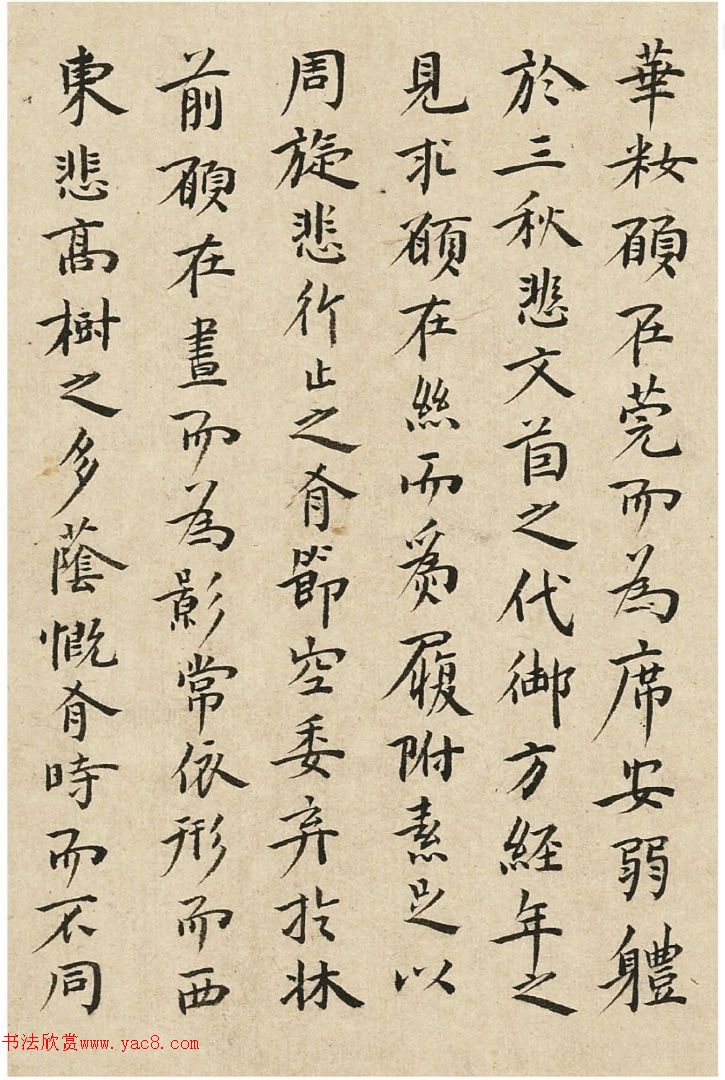 華粧願在莞而為席安弱軆
於三秋悲文茵之代御方經年之
見求願在絲而為履附素足以
周旋悲行止之有節空委弃於牀
前願在晝而為影常依形而西
東悲高樹之多蔭慨有時而不同
书法欣赏www.yac8.com